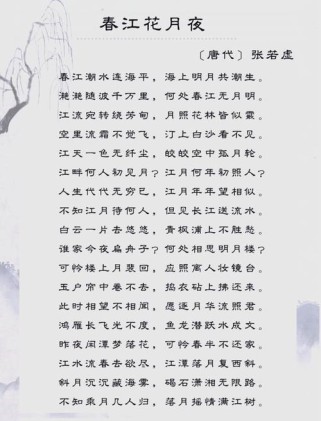 春江花月夜
〔唐代〕张若虚
春江潮水连海平，海上明月共潮生。
滟滟随波千万里，何处春江无月明。
江流宛转绕芳甸，月照花林皆似霰。
空里流霜不觉飞，汀上白沙看不见。
江天一色无纤尘，皎皎空中孤月轮。
江畔何人初见月？江月何年初照人？
人生代代无穷已，江月年年望相似。
不知江月待何人，但见长江送流水。
白云一片去悠悠，青枫浦上不胜愁。
谁家今夜扁舟子？何处相思明月楼？
可怜楼上月裴回，应照离人妆镜台。
玉户帘中卷不去，捣衣砧上拂还来。
此时相望不相闻，愿逐月华流照君。
鸿雁长飞光不度，鱼龙潜跃水成文。
昨夜闲潭梦落花，可怜春半不还家。
江水流春去欲尽，江潭落月复西斜。
斜月沉沉藏海雾，碣石潇湘无限路。
不知乘月几人归，落月摇情满江树。